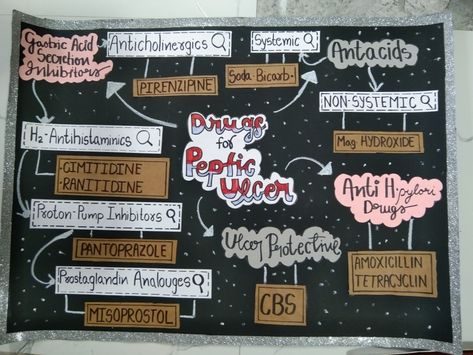 Gastric Acid
Secretion
Inhibitors
Anticholinergics
PIRENZIPINE
Systemic
Soda Bicarb.
Antacids
NON-SYSTEMIC
Mag HYDROXIDE
H2-Antihistaminics
-CIMITIDINE
-RANITIDINE
Proton-Pump Inhibitors
PANTOPRAZOLE
Prostaglandin Analouges
MISOPROSTOL
Drugs
for
Peptic
Ulcer
Ulcer Protective
CBS
Anti H-pylori
Drugs
AMOXICILLIN
TETRACYCLIN